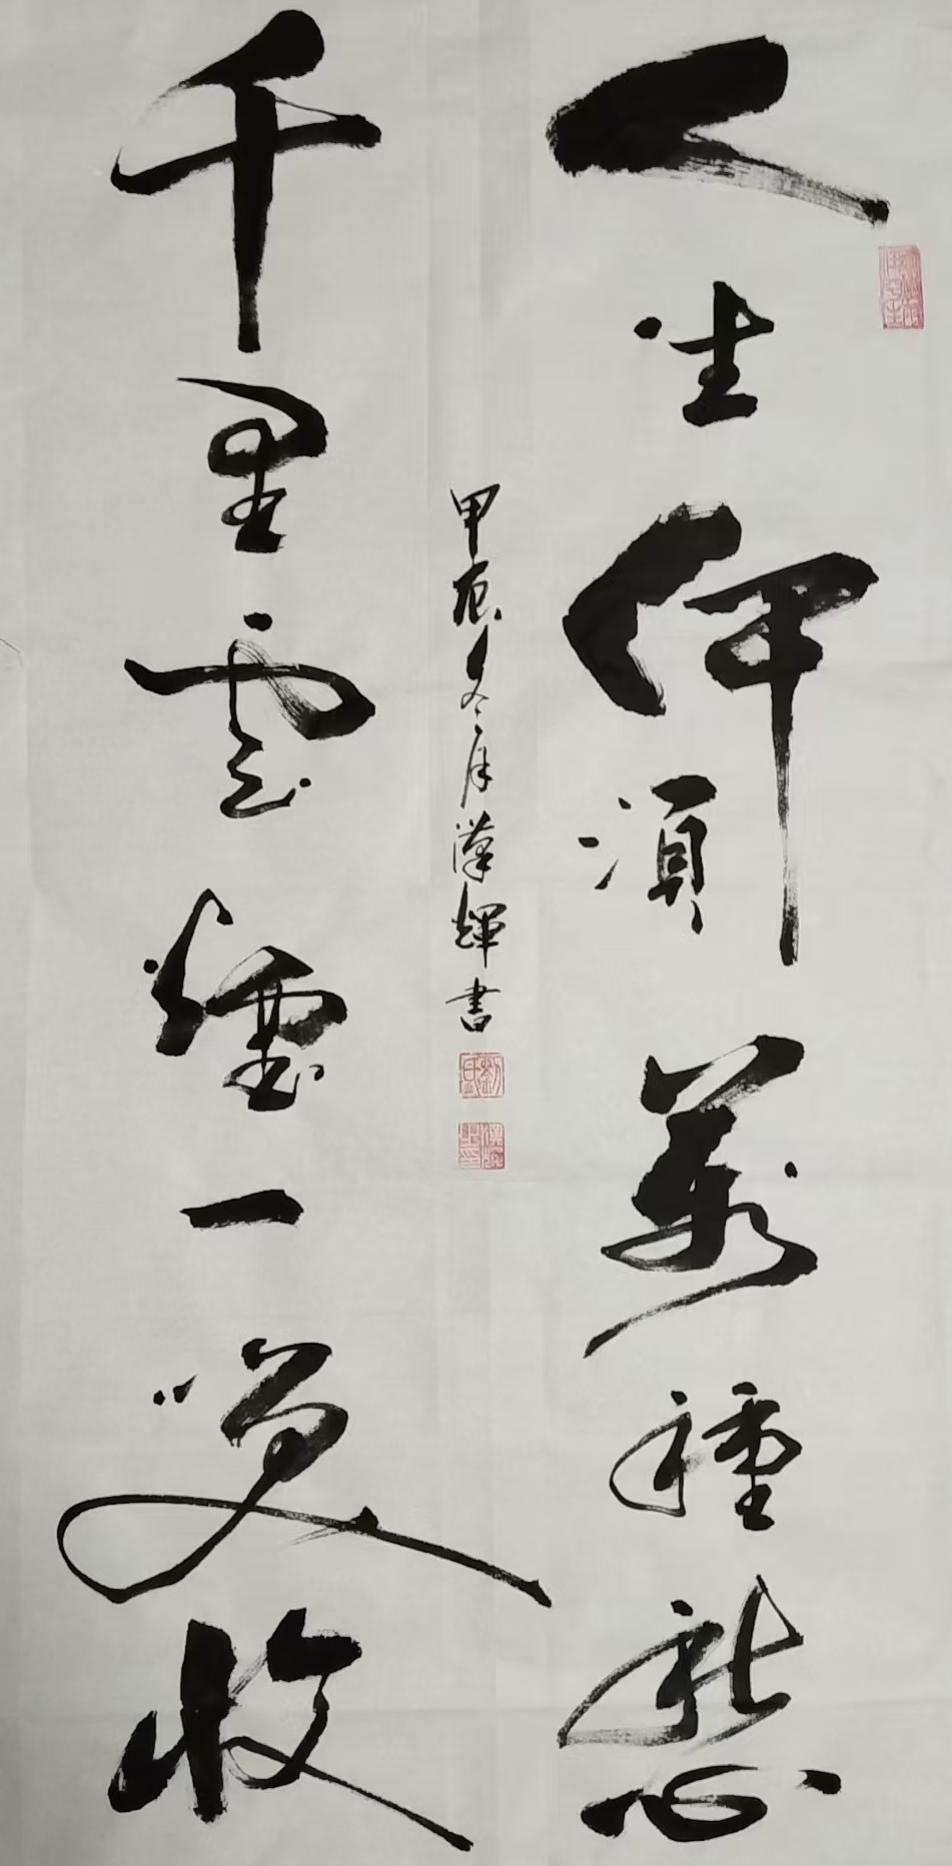 人生何須萬種愁
千里雲煙一笑收
甲辰冬月漢輝書